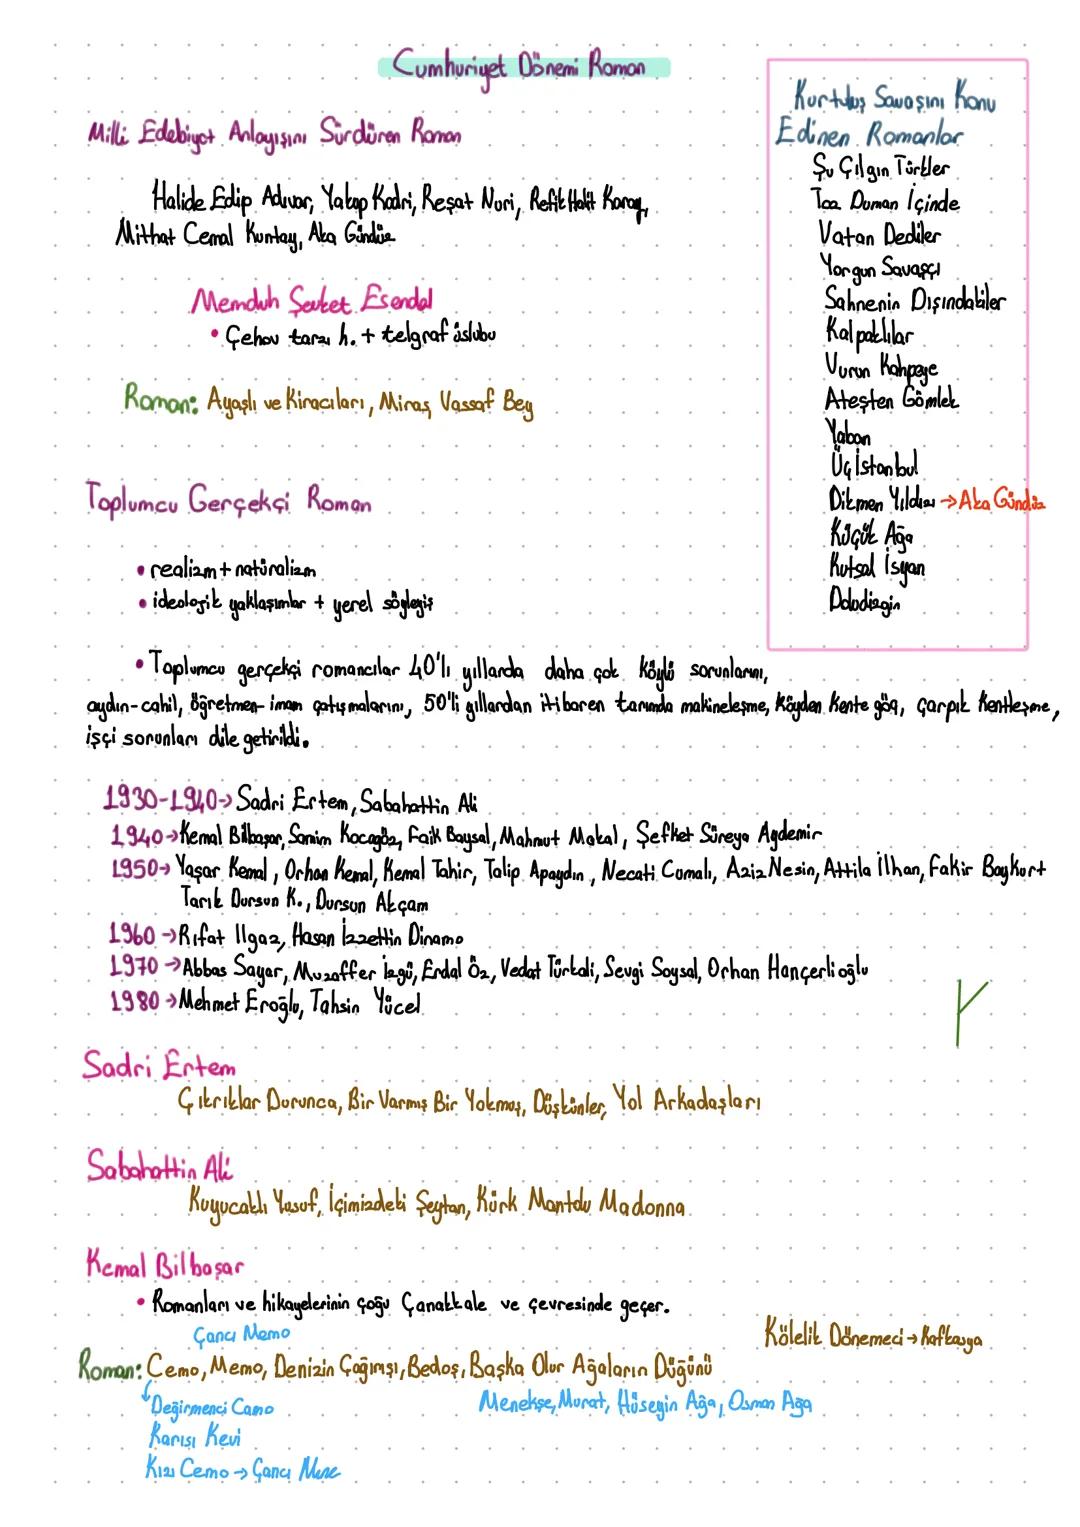 Cumhuriyet Dönemi Roman
Milli Edebiyat Anlayışını Sürdüren Roman
Halide Edip Adıvar, Yakup Kadri, Reşat Nuri, Refik Halit Karay,
Mithat Cemal Kuntay, Aka Gündüz
Memduh Şevket Esendal
• Çehov tarzı h. + telgraf üslubu
Roman: Ayaşlı ve Kiracıları, Miras, Vassaf Bey
Kurtuluş Savaşını Konu
Edinen Romanlar
Şu Çılgın Türkler
Toz Duman İçinde
Vatan Dediler
Yorgun Savaşçı
Sahnenin Dışındakiler
Kalpaklılar
Vurun Kahpeye
Ateşten Gömlek
Yaban
Üç İstanbul
Dikmen Yıldızı → Aka Gündüz
Küçük Ağa
Kutsal İsyan
Doludizgin
Toplumcu Gerçekçi Roman
• realizm + natüralizm
• ideolojik yaklaşımlar + yerel söyleyiş
• Toplumcu gerçekçi romancılar 40'lı yıllarda daha çok köylü sorunlarını,
aydın-cahil, öğretmen-imam çatışmalarını, 50'li yıllardan itibaren tarımda makineleşme, köyden kente göç, çarpık kentleşme,
işçi sorunları dile getirildi.
1930-1940→ Sadri Ertem, Sabahattin Ali
1940→ Kemal Bilbaşar, Samim Kocagöz, Faik Baysal, Mahmut Makal, Şefket Süreya Aydemir
1950→ Yaşar Kemal, Orhan Kemal, Kemal Tahir, Talip Apaydın, Necati Cumalı, Aziz Nesin, Attila İlhan, Fakir Baykurt
Tarık Dursun K., Dursun Akçam
1960 → Rıfat Ilgaz, Hasan İzzettin Dinamo
1970 → Abbas Sayar, Muzaffer İzgü, Erdal Öz, Vedat Türkali, Sevgi Soysal, Orhan Hançerlioğlu
1980 → Mehmet Eroğlu, Tahsin Yücel
Sadri Ertem
Çıkrıklar Durunca, Bir Varmış Bir Yokmuş, Düşkünler, Yol Arkadaşları
Sabahattin Ali
Kuyucaklı Yusuf, İçimizdeki Şeytan, Kürk Mantolu Madonna
Kemal Bilbaşar
• Romanları ve hikayelerinin çoğu Çanakkale ve çevresinde geçer.
Çancı Memo
Kölelik Dönemeci → Kafkasya
Roman: Cemo, Memo, Denizin Çağırışı, Bedoş, Başka Olur Ağaların Düğünü
Değirmenci Camo
Menekşe, Murat, Hüseyin Ağa, Osman Ağa
Karısı Kevi
Kızı Cemo → Çancı